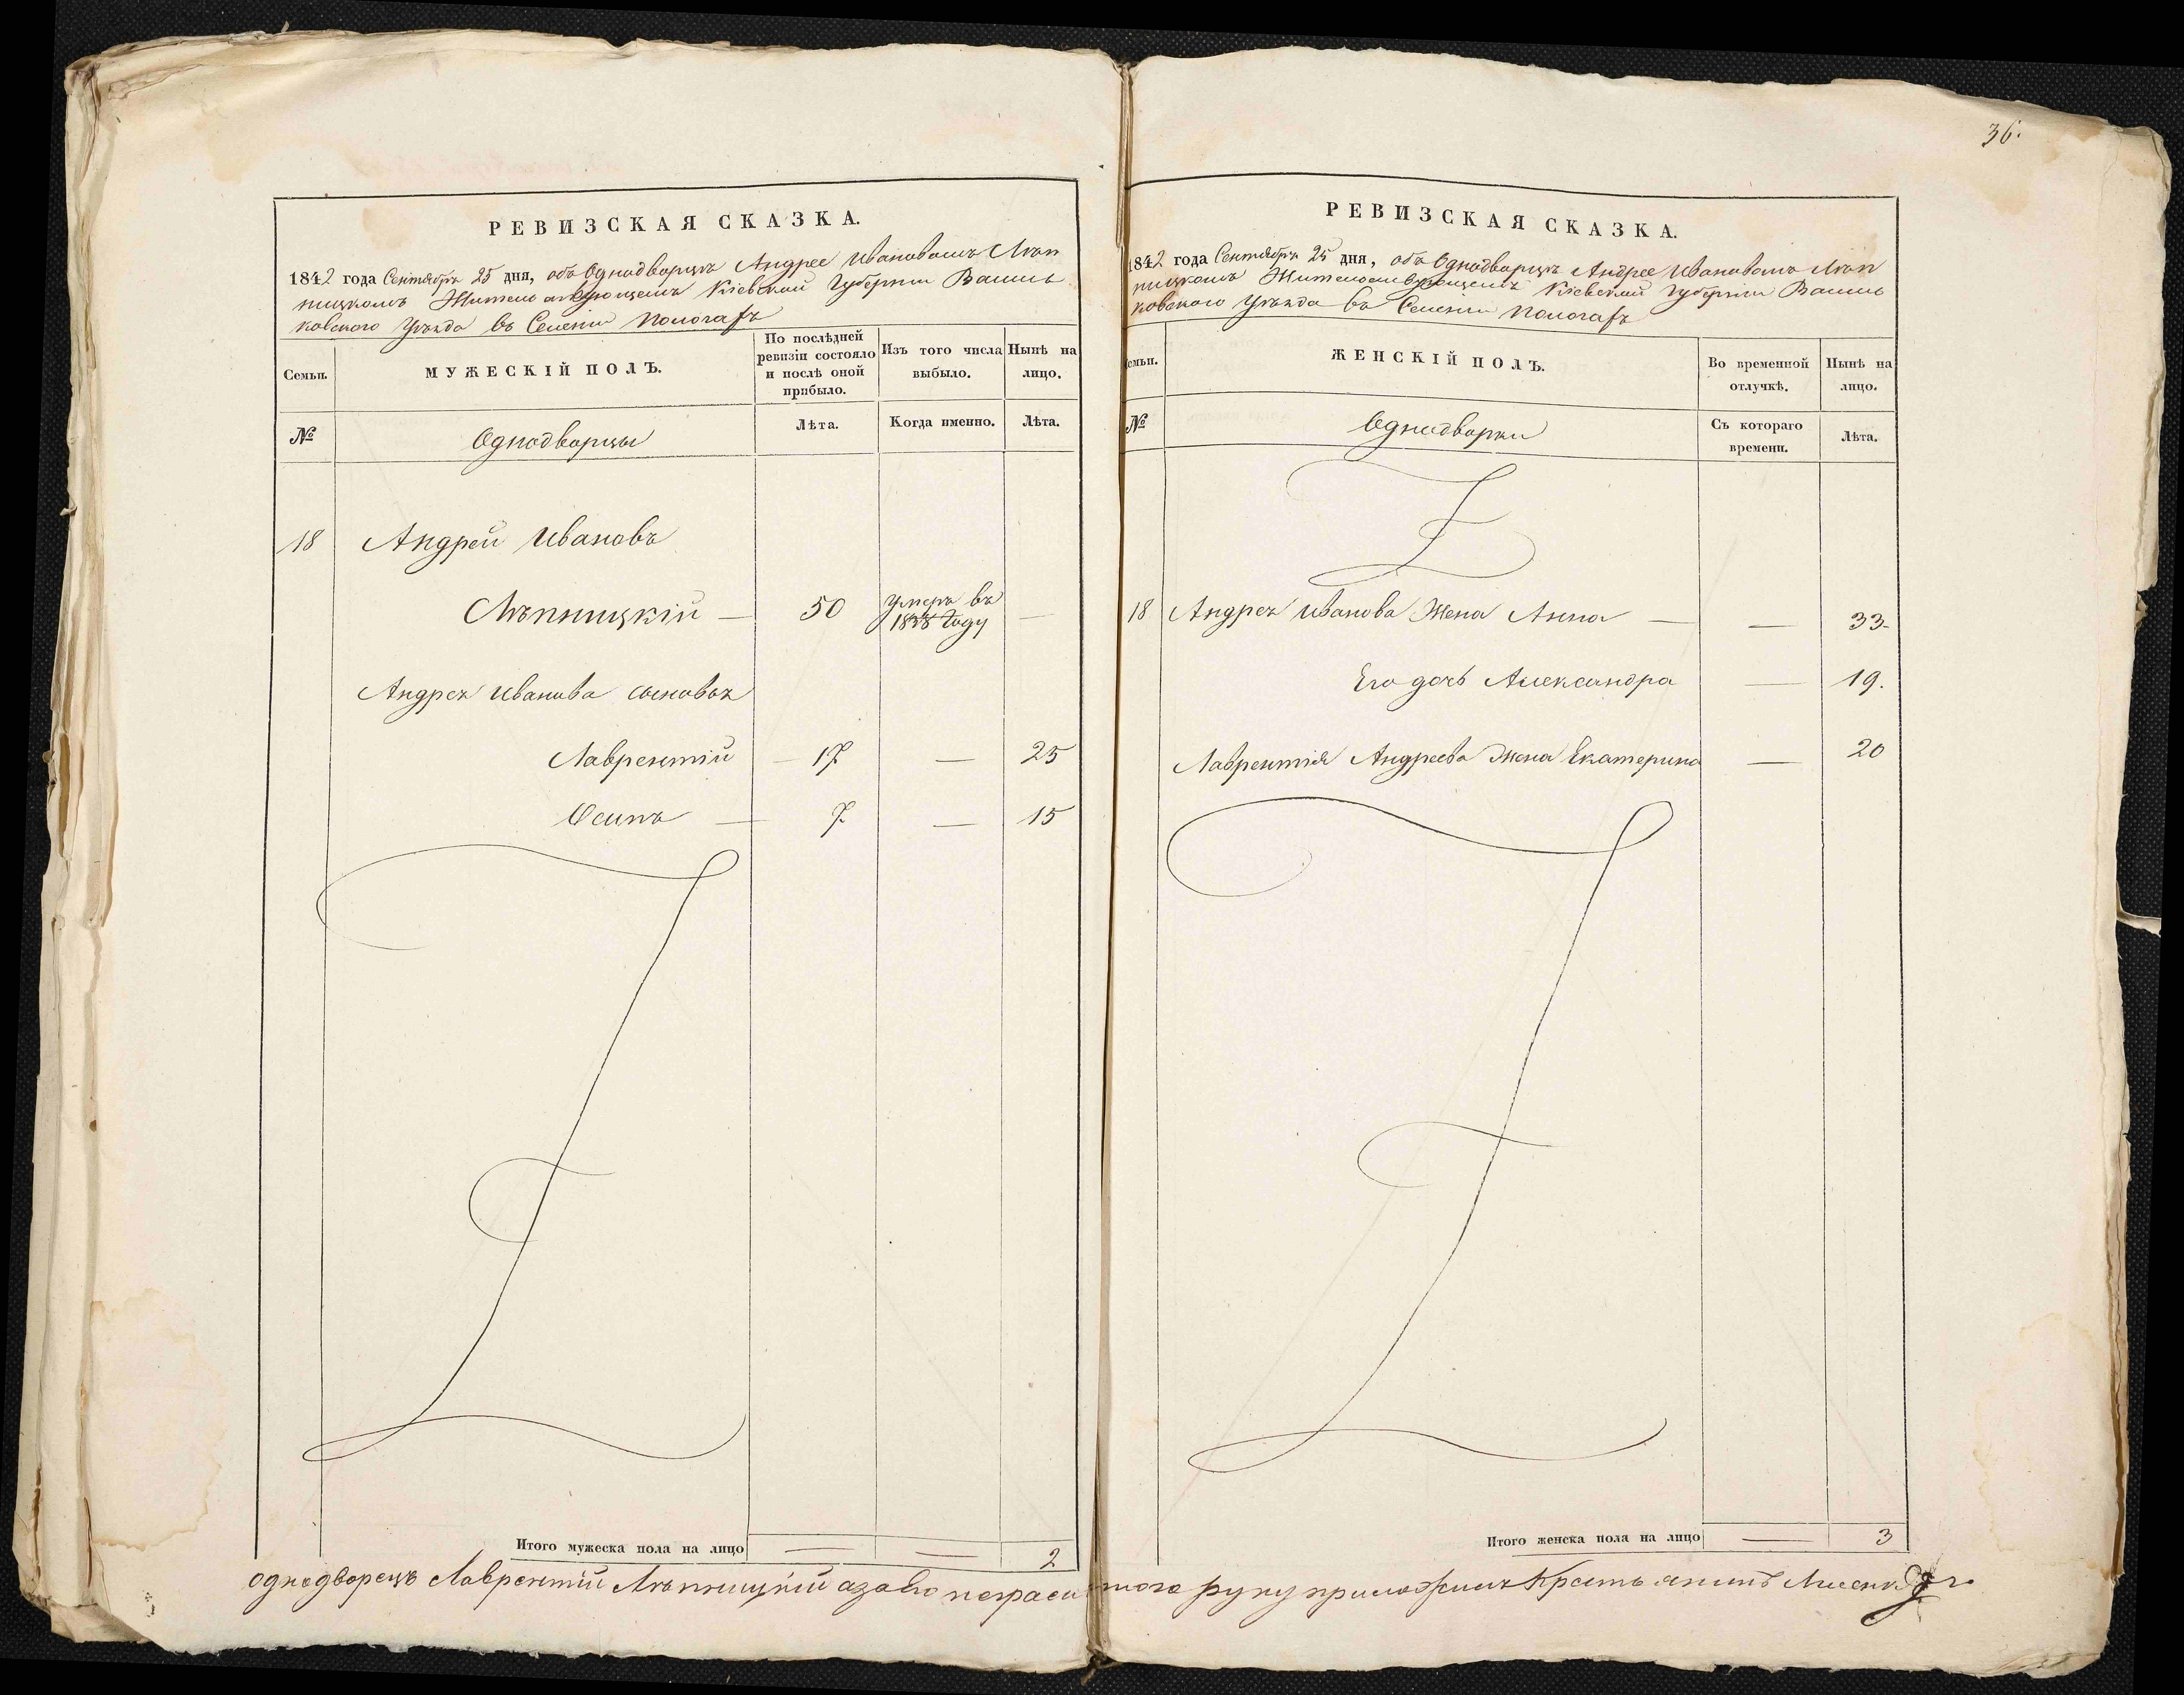 36.
РЕВИЗСКАЯ СКАЗКА.
1842 года Сентября 25 дня, объ Однодворцѣ Андрее Ивановомъ Лѣп
ницкомъ Жительствующемъ Кіевской Губерніи Василь
ковскаго Уѣзда въ Селеніи
Семьи.
МУЖЕСКІЙ ПОЛЪ.
По послѣдней ревизіи состояло и послѣ оной прибыло.
Изъ того числа выбыло.
Нынѣ на лицо.
№
Однодворцы
Лѣта.
Когда именно.
Лѣта.
18 Андрей Ивановъ
Лѣпницкій — 50 умеръ въ —
1838 году
Андрея Иванова сыновья
Лаврентій — 17 — 25
Осипъ — 7 — 15
Итого мужеска пола на лицо — — 2
РЕВИЗСКАЯ СКАЗКА.
1842 года Сентября 25 дня, объ Однодворцѣ Андрее Ивановомъ Лѣп
ницкомъ Жительствующемъ Кіевской Губерніи Василь
ковскаго Уѣзда въ Селеніи
Семьи.
ЖЕНСКІЙ ПОЛЪ.
Во временной отлучкѣ.
Нынѣ на лицо.
№
Однодворки
Съ котораго времени.
Лѣта.
18 Андрея Иванова Жена Анна — — 33.
Его дочь Александра — 19.
Лаврентія Андреева Жена Екатерина — 20
Итого женска пола на лицо — 3
однодворецъ Лаврентій Лѣпницкій а за его руку приложилъ